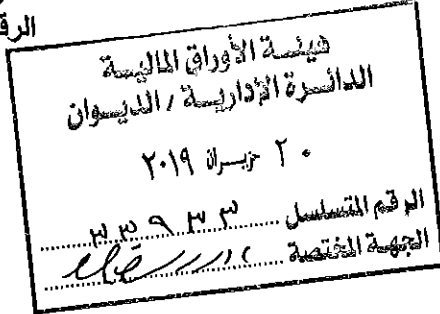 الرقم
هيئة الأوراق المالية
الدائرة الإدارية / الديوان
٢٠ حزيران ٢٠١٩
الرقم المتسلسل ٣٣٩٣٣
الجهة المختصة